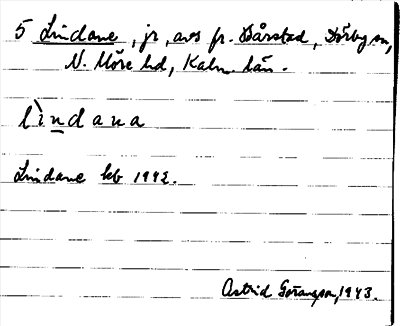 5 Lindane, jr, avs fr. Bårstad, Dörby sn,
N. Möre hd, Kalm. län.
lìndana
Lindane kb 1942.
Astrid Göransson, 1943.